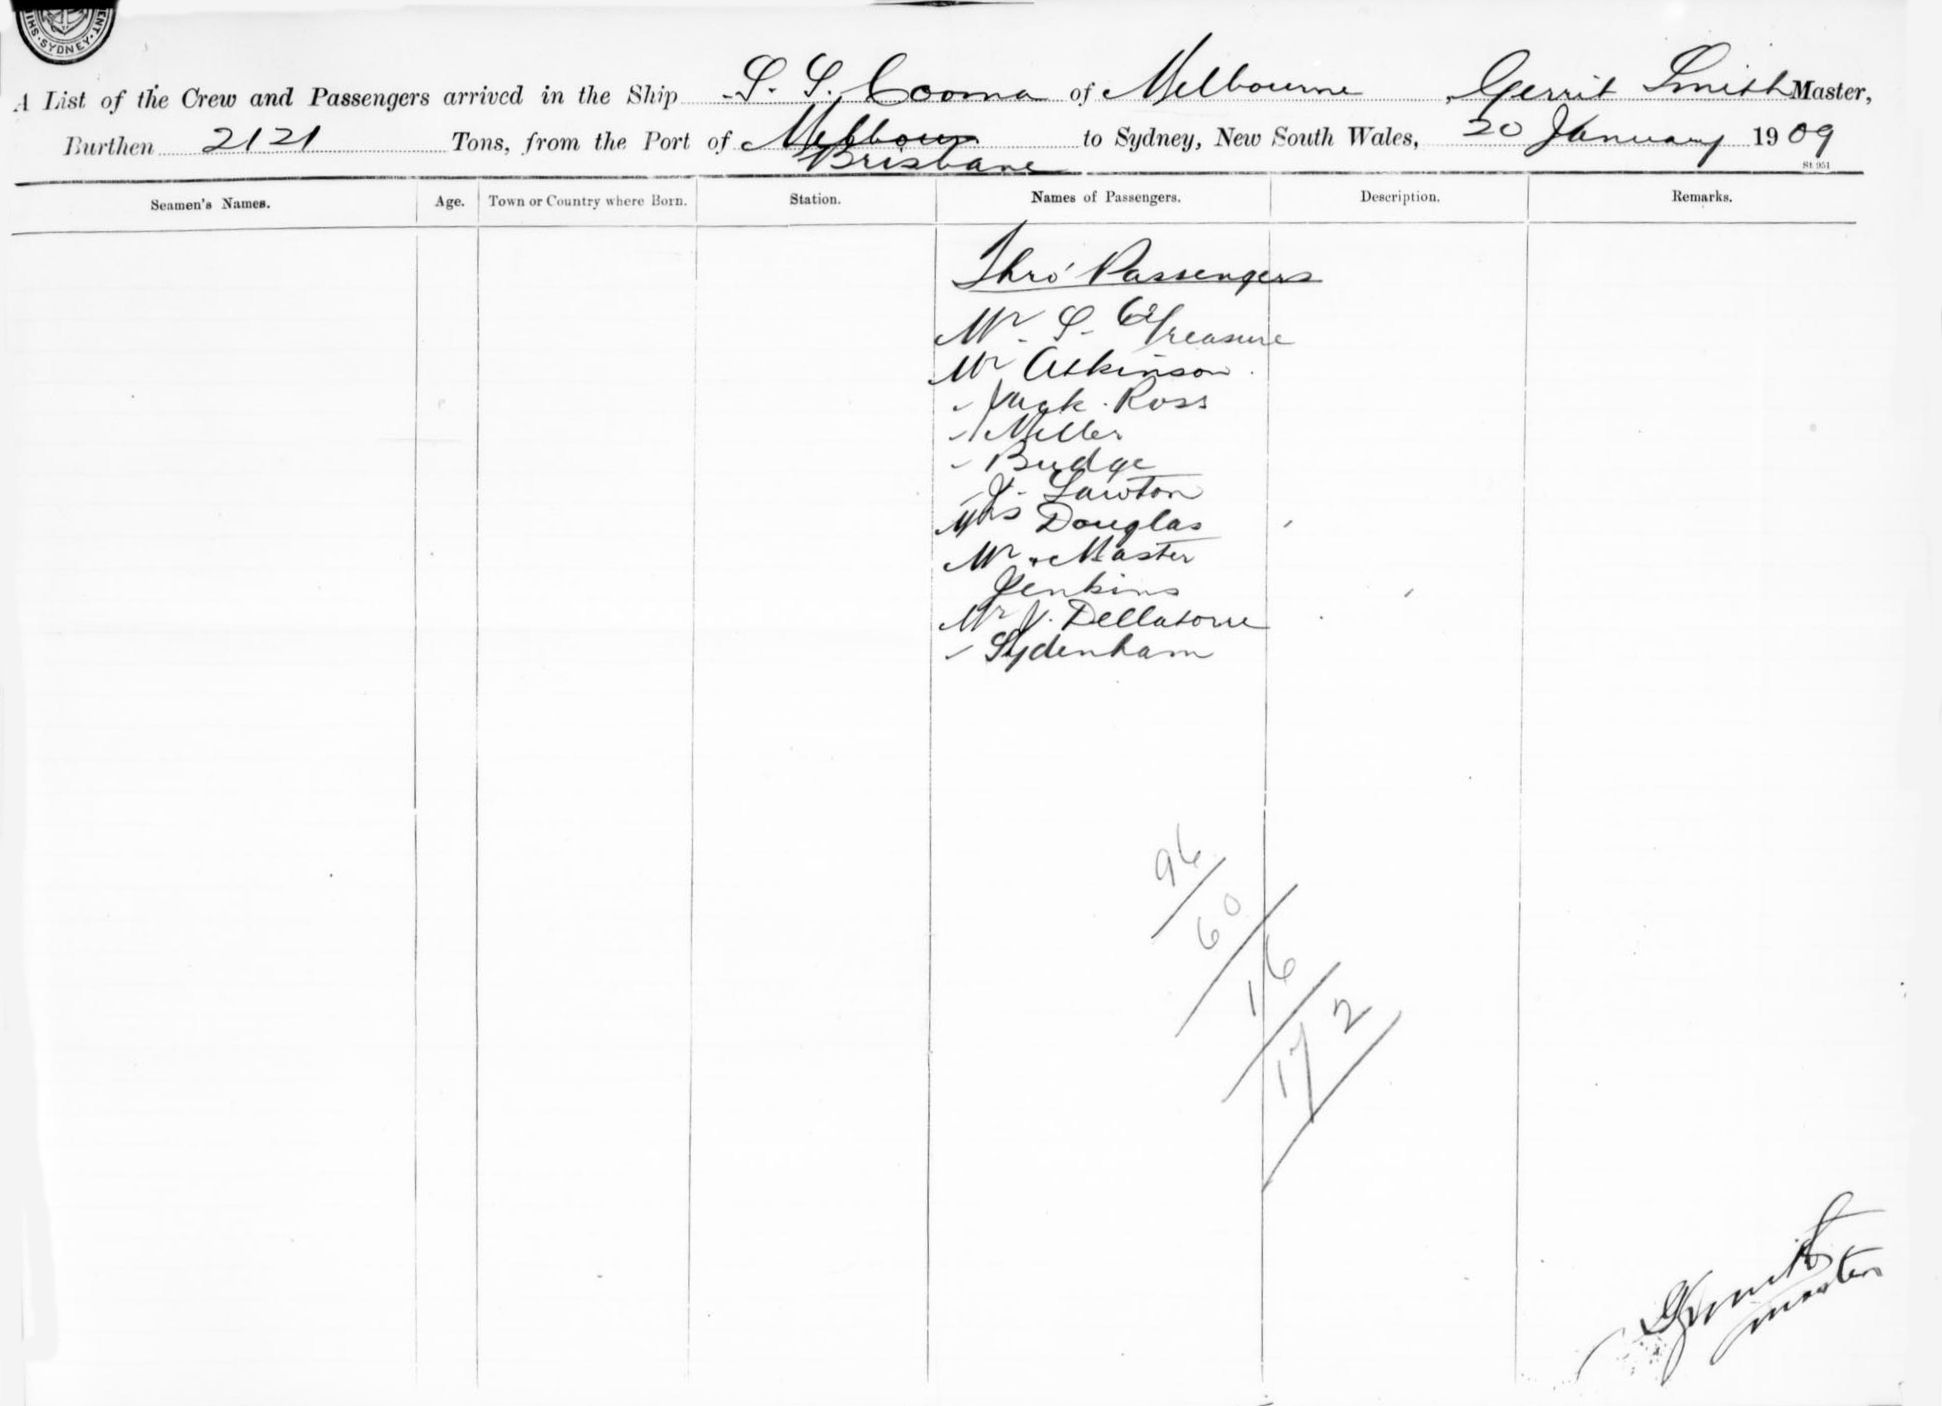 SHI · SYDNEY · ENT
A List of the Crew and Passengers arrived in the Ship S. S. Cooma of Melbourne, Gerrit Smith Master,
Burthen 2121 Tons, from the Port of Melbourn Brisbane to Sydney, New South Wales, 20 January 1909
St 951
Seamen's Names. Age. Town or Country where Born. Station. Names of Passengers. Description. Remarks.
Thro' Passengers
Mr S. Treasure
Mr Atkinson
" Jack Ross
" Miller
" Budge
" J. Lawton
Mrs Douglas
Mr & Master
Jenkins
Mr J. Dellatorre
" Sydenham
96
60
16
172
G Smith
master